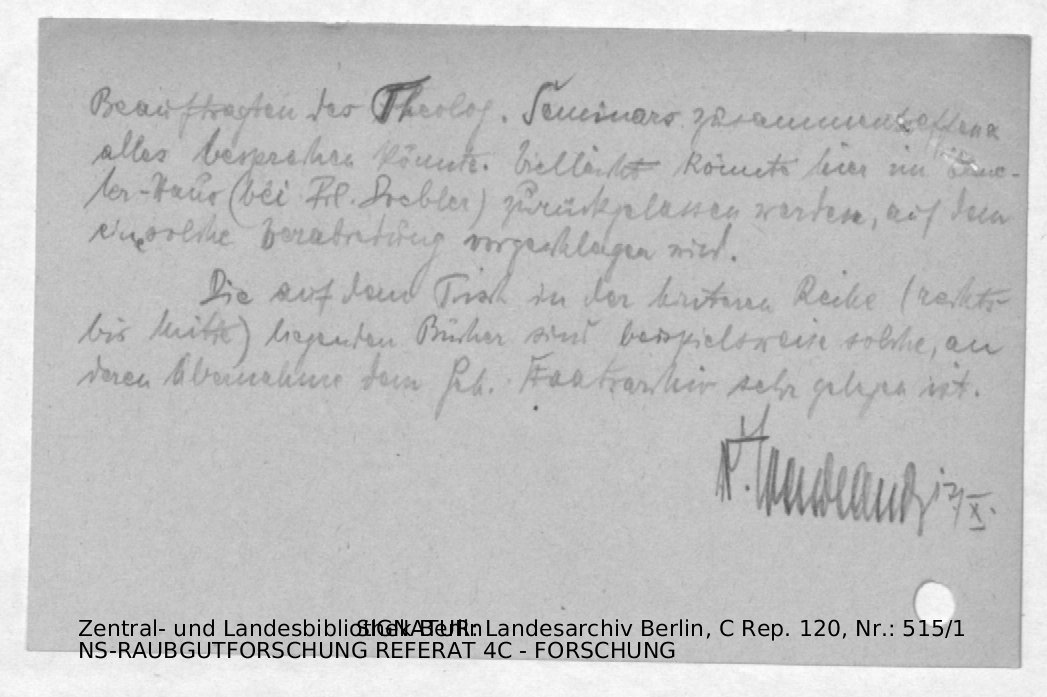 Beauftragten des Theolog. Seminars zusammentreffen
alles besprechen könnte. Vielleicht könnte hier im
ler-Haus (bei Frl. ) zurückgelassen werden, auf dem
eine solche Verabredung vorgeschlagen wird.
Die auf dem Tisch in der hinteren Reihe (rechts
bis Mitte) liegenden Bücher sind beispielsweise solche, an
deren Übernahme dem Geh. Staatsarchiv sehr gelegen ist.
17/X.
Zentral- und Landesbibliothek Berlin
SIGNATUR: Landesarchiv Berlin, C Rep. 120, Nr.: 515/1
NS-RAUBGUTFORSCHUNG REFERAT 4C - FORSCHUNG